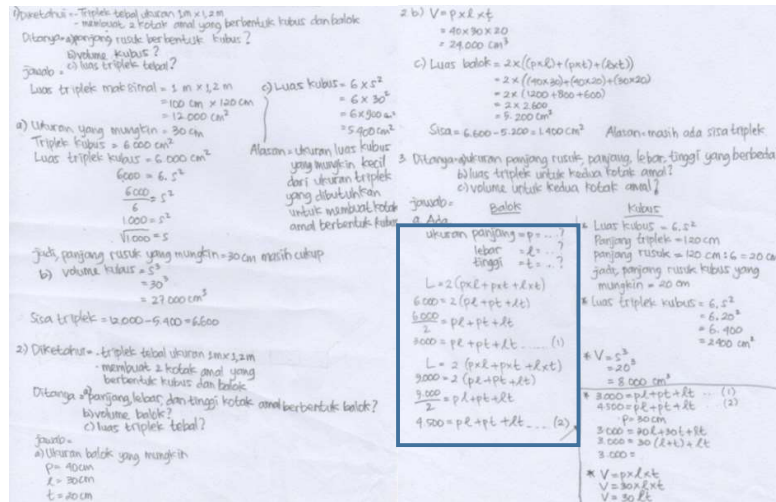 1) Diketahui = - Triplek tebal ukuran 1m x 1,2m
- membuat 2 kotak amal yang berbentuk kubus dan balok
Ditanya = a) panjang rusuk berbentuk kubus?
b) volume kubus?
c) luas triplek tebal?
jawab =
Luas triplek maksimal = 1 m x 1,2 m
= 100 cm x 120 cm
= 12.000 cm²
a) Ukuran yang mungkin = 30 cm
Triplek kubus = 6.000 cm²
Luas triplek kubus = 6.000 cm²
6.000 = 6.s²
6.000 / 6 = s²
1.000 = s²
√1.000 = s
jadi, panjang rusuk yang mungkin = 30 cm masih cukup
b) volume kubus = s³
= 30³
= 27.000 cm³
Sisa triplek = 12.000 - 5.400 = 6.600
c) Luas kubus = 6 x s²
= 6 x 30²
= 6 x 900 cm²
= 5.400 cm²
Alasan = ukuran luas kubus
yang mungkin kecil
dari ukuran triplek
yang dibutuhkan
untuk membuat kotak
amal berbentuk kubus
2) Diketahui = - triplek tebal ukuran 1m x 1,2m
- membuat 2 kotak amal yang
berbentuk kubus dan balok
Ditanya = a) panjang, lebar, dan tinggi kotak amal berbentuk balok?
b) volume balok?
c) luas triplek tebal?
jawab =
a) Ukuran balok yang mungkin
p = 40 cm
l = 30 cm
t = 20 cm
2 b) V = p x l x t
= 40 x 30 x 20
= 24.000 cm³
c) Luas balok = 2 x ((p x l) + (p x t) + (l x t))
= 2 x ((40 x 30) + (40 x 20) + (30 x 20)
= 2 x (1200 + 800 + 600)
= 2 x 2.600
= 5.200 cm²
Sisa = 6.600 - 5.200 = 1.400 cm² Alasan = masih ada sisa triplek
3. Ditanya = a) ukuran panjang rusuk, panjang, lebar, tinggi yang berbeda
b) luas triplek untuk kedua kotak amal?
c) volume untuk kedua kotak amal?
jawab =
a. Ada
Balok
ukuran panjang = p = ...?
lebar = l = ...?
tinggi = t = ...?
L = 2 (pxl + pxt + lxt)
6.000 = 2 (pl + pt + lt)
6.000 / 2 = pl + pt + lt
3000 = pl + pt + lt ..... (1)
L = 2 (pxl + pxt + lxt)
9.000 = 2 (pl + pt + lt)
9.000 / 2 = pl + pt + lt
4.500 = pl + pt + lt .... (2)
Kubus
* Luas kubus = 6.s²
Panjang triplek = 120 cm
panjang rusuk = 120 cm : 6 = 20 cm
jadi, panjang rusuk kubus yang
mungkin = 20 cm
* luas triplek kubus = 6.s²
= 6.20²
= 6.400
= 2400 cm²
* V = s³
= 20³
= 8.000 cm³
* 3.000 = pl + pt + lt ... (1)
4500 = pl + pt + lt (2)
p = 30 cm
3.000 = 30l + 30t + lt
3.000 = 30 (l+t) + lt
3.000 =
* V = p x l x t
V = 30 x l x t
V = 30 lt